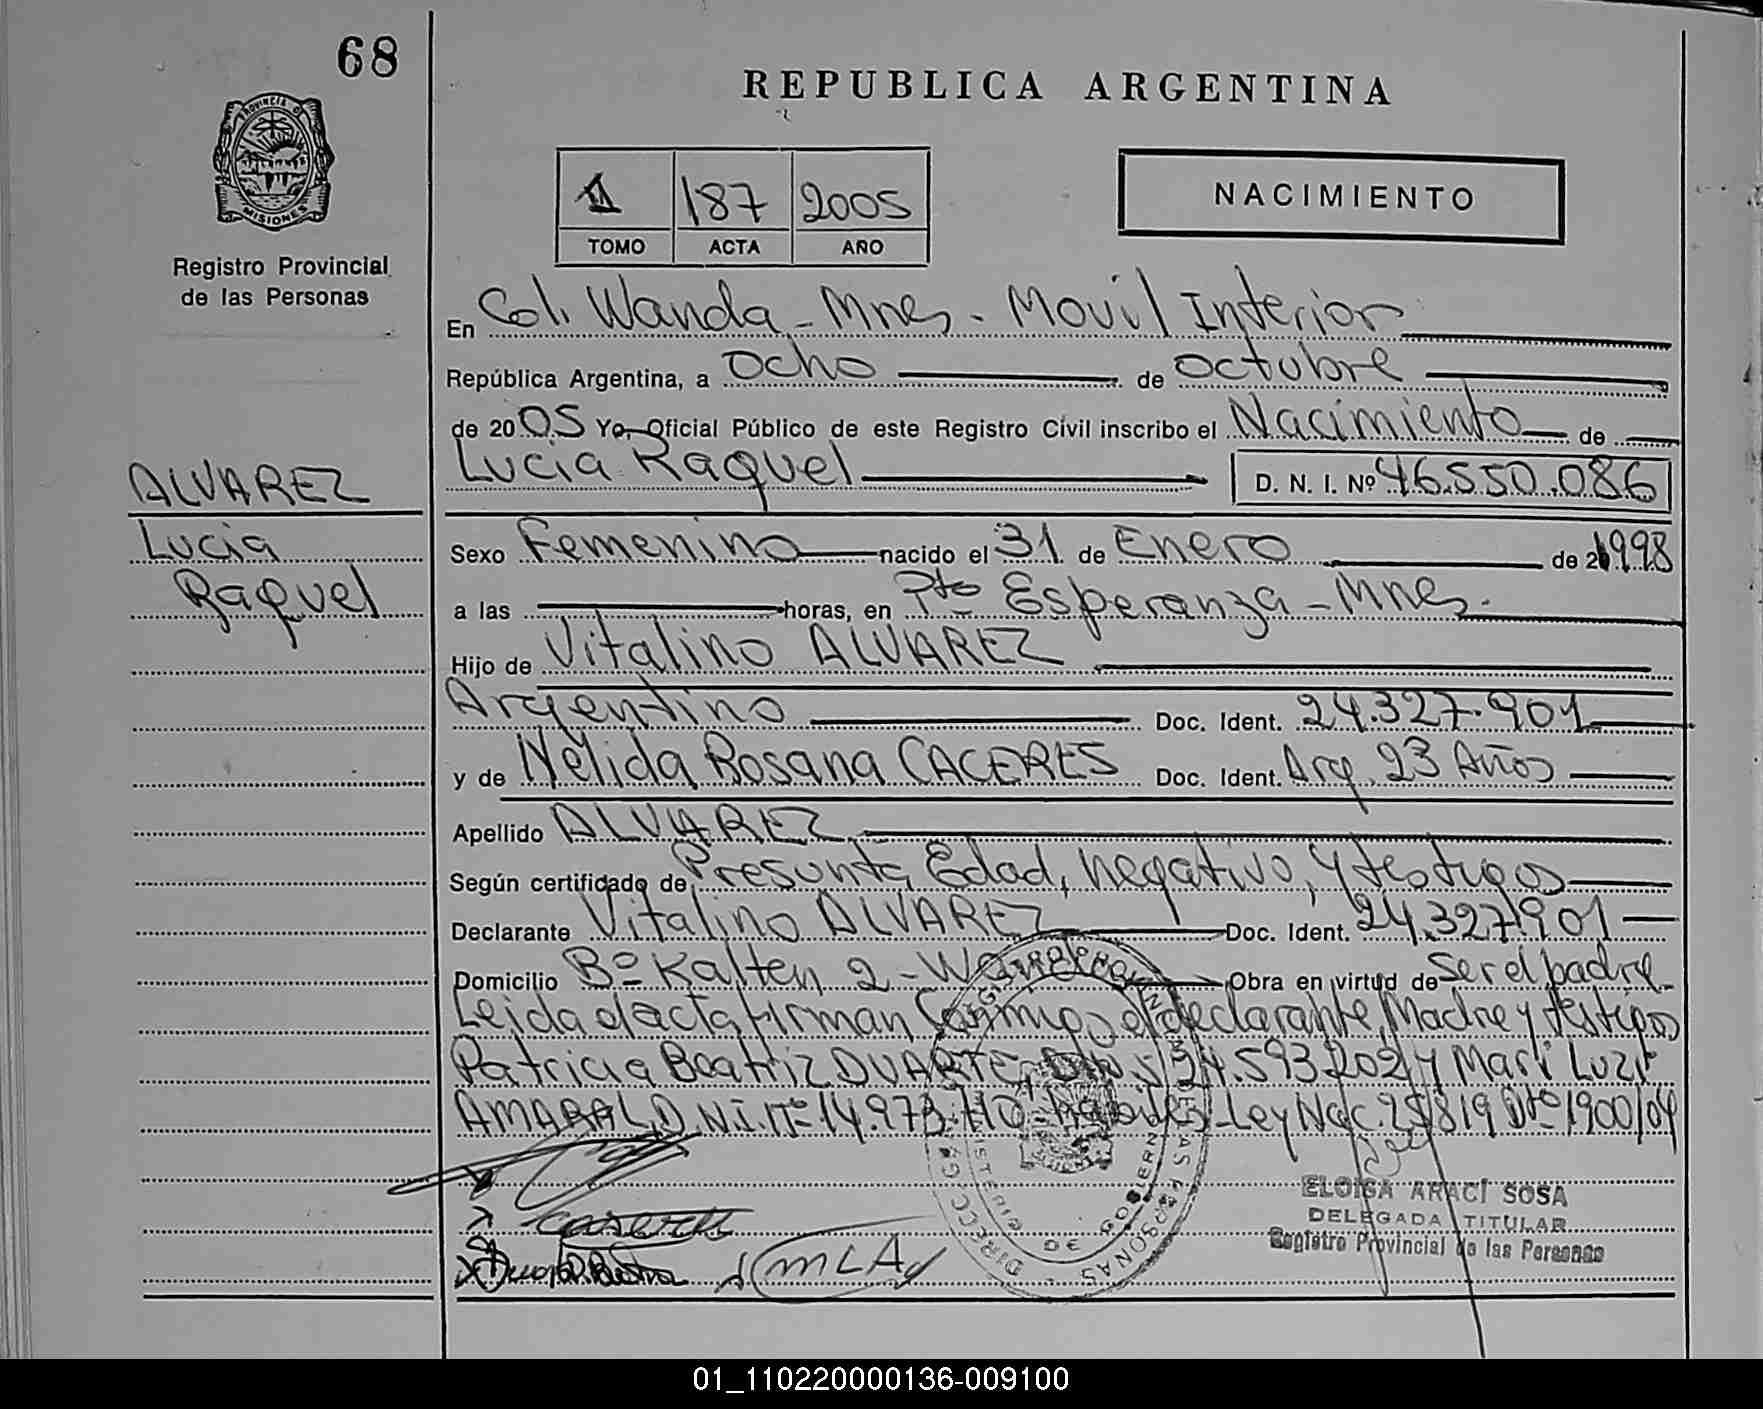 68
REPUBLICA ARGENTINA
PROVINCIA D
MISIONES
Registro Provincial
de las Personas
1 187 2005
TOMO ACTA AÑO
NACIMIENTO
En Col. Wanda - Mnes - Movil Interior
República Argentina, a ocho de octubre
de 2005 Yo, Oficial Público de este Registro Civil inscribo el Nacimiento de
Lucia Raquel D. N. I. Nº 46.550.086
ALVAREZ
Lucia
Raquel
Sexo Femenino nacido el 31 de Enero de 1998
a las horas, en Pto Esperanza - Mnes.
Hijo de Vitalino ALVAREZ
Argentino Doc. Ident. 24.327.901
y de Nelida Rosana CACERES Doc. Ident. Arg. 23 Años
Apellido ALVAREZ
Según certificado de Presunta Edad, negativo, y testigos
Declarante Vitalino ALVAREZ Doc. Ident. 24.327.901
Domicilio Bº Kalten 2 - Wanda Obra en virtud de ser el padre
Leida el acta firman Conmigo el declarante, Madre y testigos
Patricia Beatriz DUARTE, 24.593.202 y Mari Luz
AMARAL D.N.I. Nº 14.973. Ley Nac. 25819 Dto 1900/04
ELOISA ARACI SOSA
DELEGADA TITULAR
Registro Provincial de las Personas
01_110220000136-009100